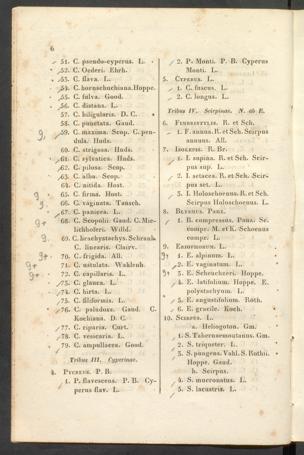 6
51. C. pseudo-cyperus. L.
52. C. Oederi. Ehrh.
53. C. flava. L.
54. C. hornschuchiana. Hoppe.
55. C. fulva. Good.
56. C. distans. L.
57. C. biligularis. D. C.
58. C. punctata. Gaud.
59. C. maxima. Scop. C. pen-
dula. Huds.
60. C. strigosa. Huds.
61. C. sylvatica. Huds.
62. C. pilosa. Scop.
63. C. alba. Scop.
64. C. nitida. Host.
65. C. firma. Host.
66. C. vaginata. Tausch.
67. C. panicea. L.
68. C. Scopolii. Gaud. C. Mie-
lichhoferi. Willd.
69. C. brachystachys. Schrank.
C. linearis. Clairv.
70. C. frigida. All.
71. C. ustulata. Wahlenb.
72. C. capillaris. L.
73. C. glauca. L.
74. C. hirta. L.
75. C. filiformis. L.
76. C. paludosa. Gaud. C.
Kochiana. D. C.
77. C. riparia. Curt.
78. C. vesicaria. L.
79. C. ampullacea. Good.
Tribus III. Cyperinae.
4. Pycreus. P. B.
1. P. flavescens. P. B. Cy-
perus flav. L.
2. P. Monti. P. B. Cyperus
Monti. L.
5. Cyperus. L.
1. C. fuscus. L.
2. C. longus. L.
Tribus IV. Scirpinae. N. ab E.
6. Fimbristylis. R. et Sch.
1. F. annua. R. et Sch. Scirpus
annuus. All.
7. Isolepis. R. Br.
1. I. supina. R. et Sch. Scir-
pus sup. L.
2. I. setacea. R. et Sch. Scir-
pus set. L.
3. I. Holoschoenus. R. et Sch.
Scirpus Holoschoenus. L.
8. Blysmus. Panz.
1. B. compressus. Panz. Sc.
compr. M. et K. Schoenus
compr. L.
9. Eriophorum. L.
1. E. alpinum. L.
2. E. vaginatum. L.
3. E. Scheuchzeri. Hoppe.
4. E. latifolium. Hoppe. E.
polystachyum. L.
5. E. angustifolium. Roth.
6. E. gracile. Koch.
10. Scirpus. L.
a. Heliogoton. Gm.
1. S. Tabernaemontanus. Gm.
2. S. triqueter. L.
3. S. pungens. Vahl. S. Rothii.
Hoppe. Gaud.
b. Scirpus.
4. S. mucronatus. L.
5. S. lacustris. L.